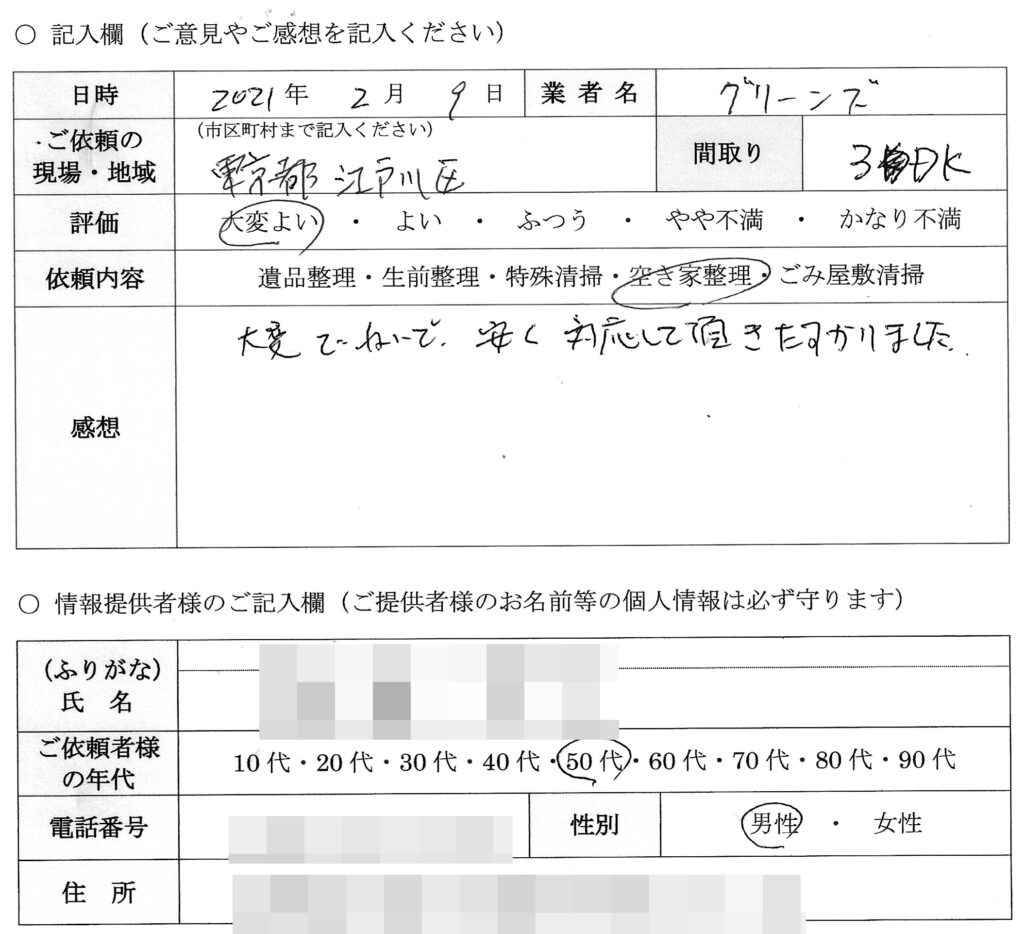 ○ 記入欄（ご意見やご感想を記入ください）
日時 2021年 2月 9日 業者名 グリーンズ
ご依頼の現場・地域 （市区町村まで記入ください）
東京都 江戸川区 間取り 3DK
評価 大変よい ・ よい ・ ふつう ・ やや不満 ・ かなり不満
依頼内容 遺品整理・生前整理・特殊清掃・空き家整理・ごみ屋敷清掃
感想 大変てーねいで、安く対応して頂きたすかりました。
○ 情報提供者様のご記入欄（ご提供者様のお名前等の個人情報は必ず守ります）
（ふりがな）
氏 名
ご依頼者様の年代 10代・20代・30代・40代・50代・60代・70代・80代・90代
電話番号 性別 男性 ・ 女性
住 所